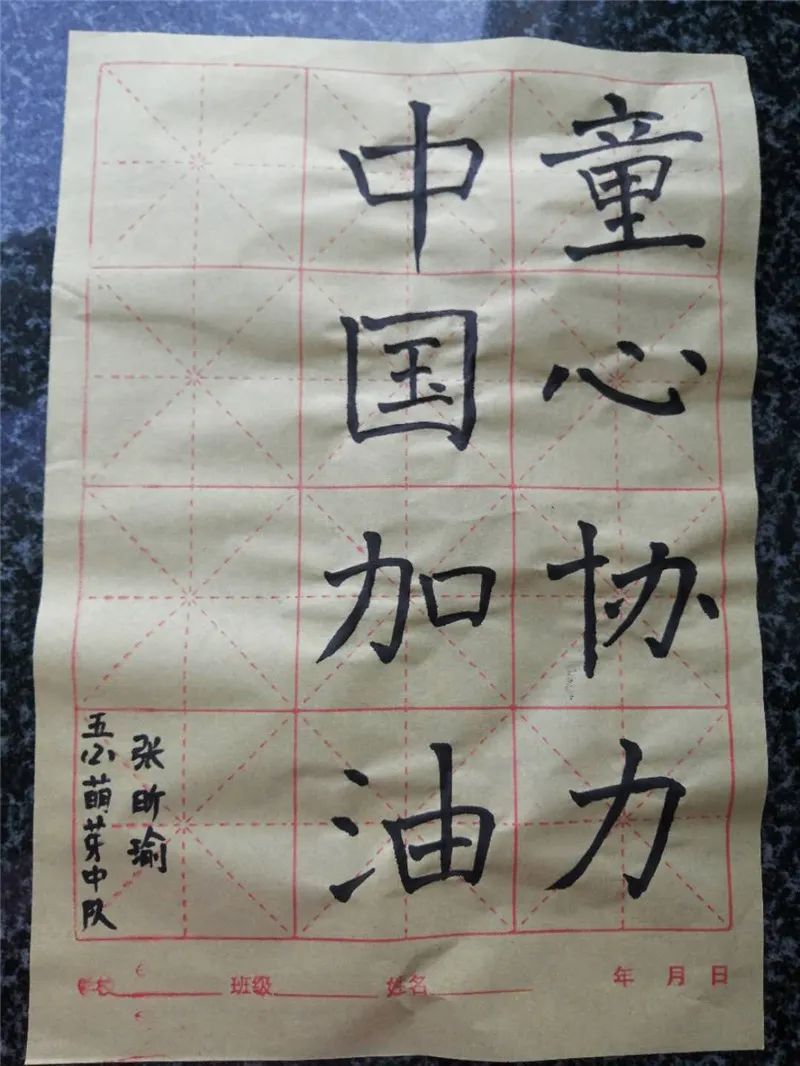 童心协力
中国加油
张昕瑜
五(2)萌芽中队
学校 班级 姓名 年 月 日